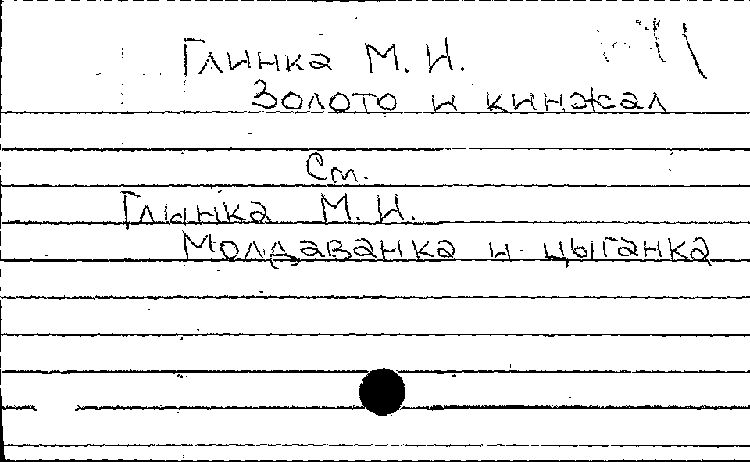 Глинка М. И.
Золото и кинжал
См.
Глинка М. И.
Молдаванка и цыганка